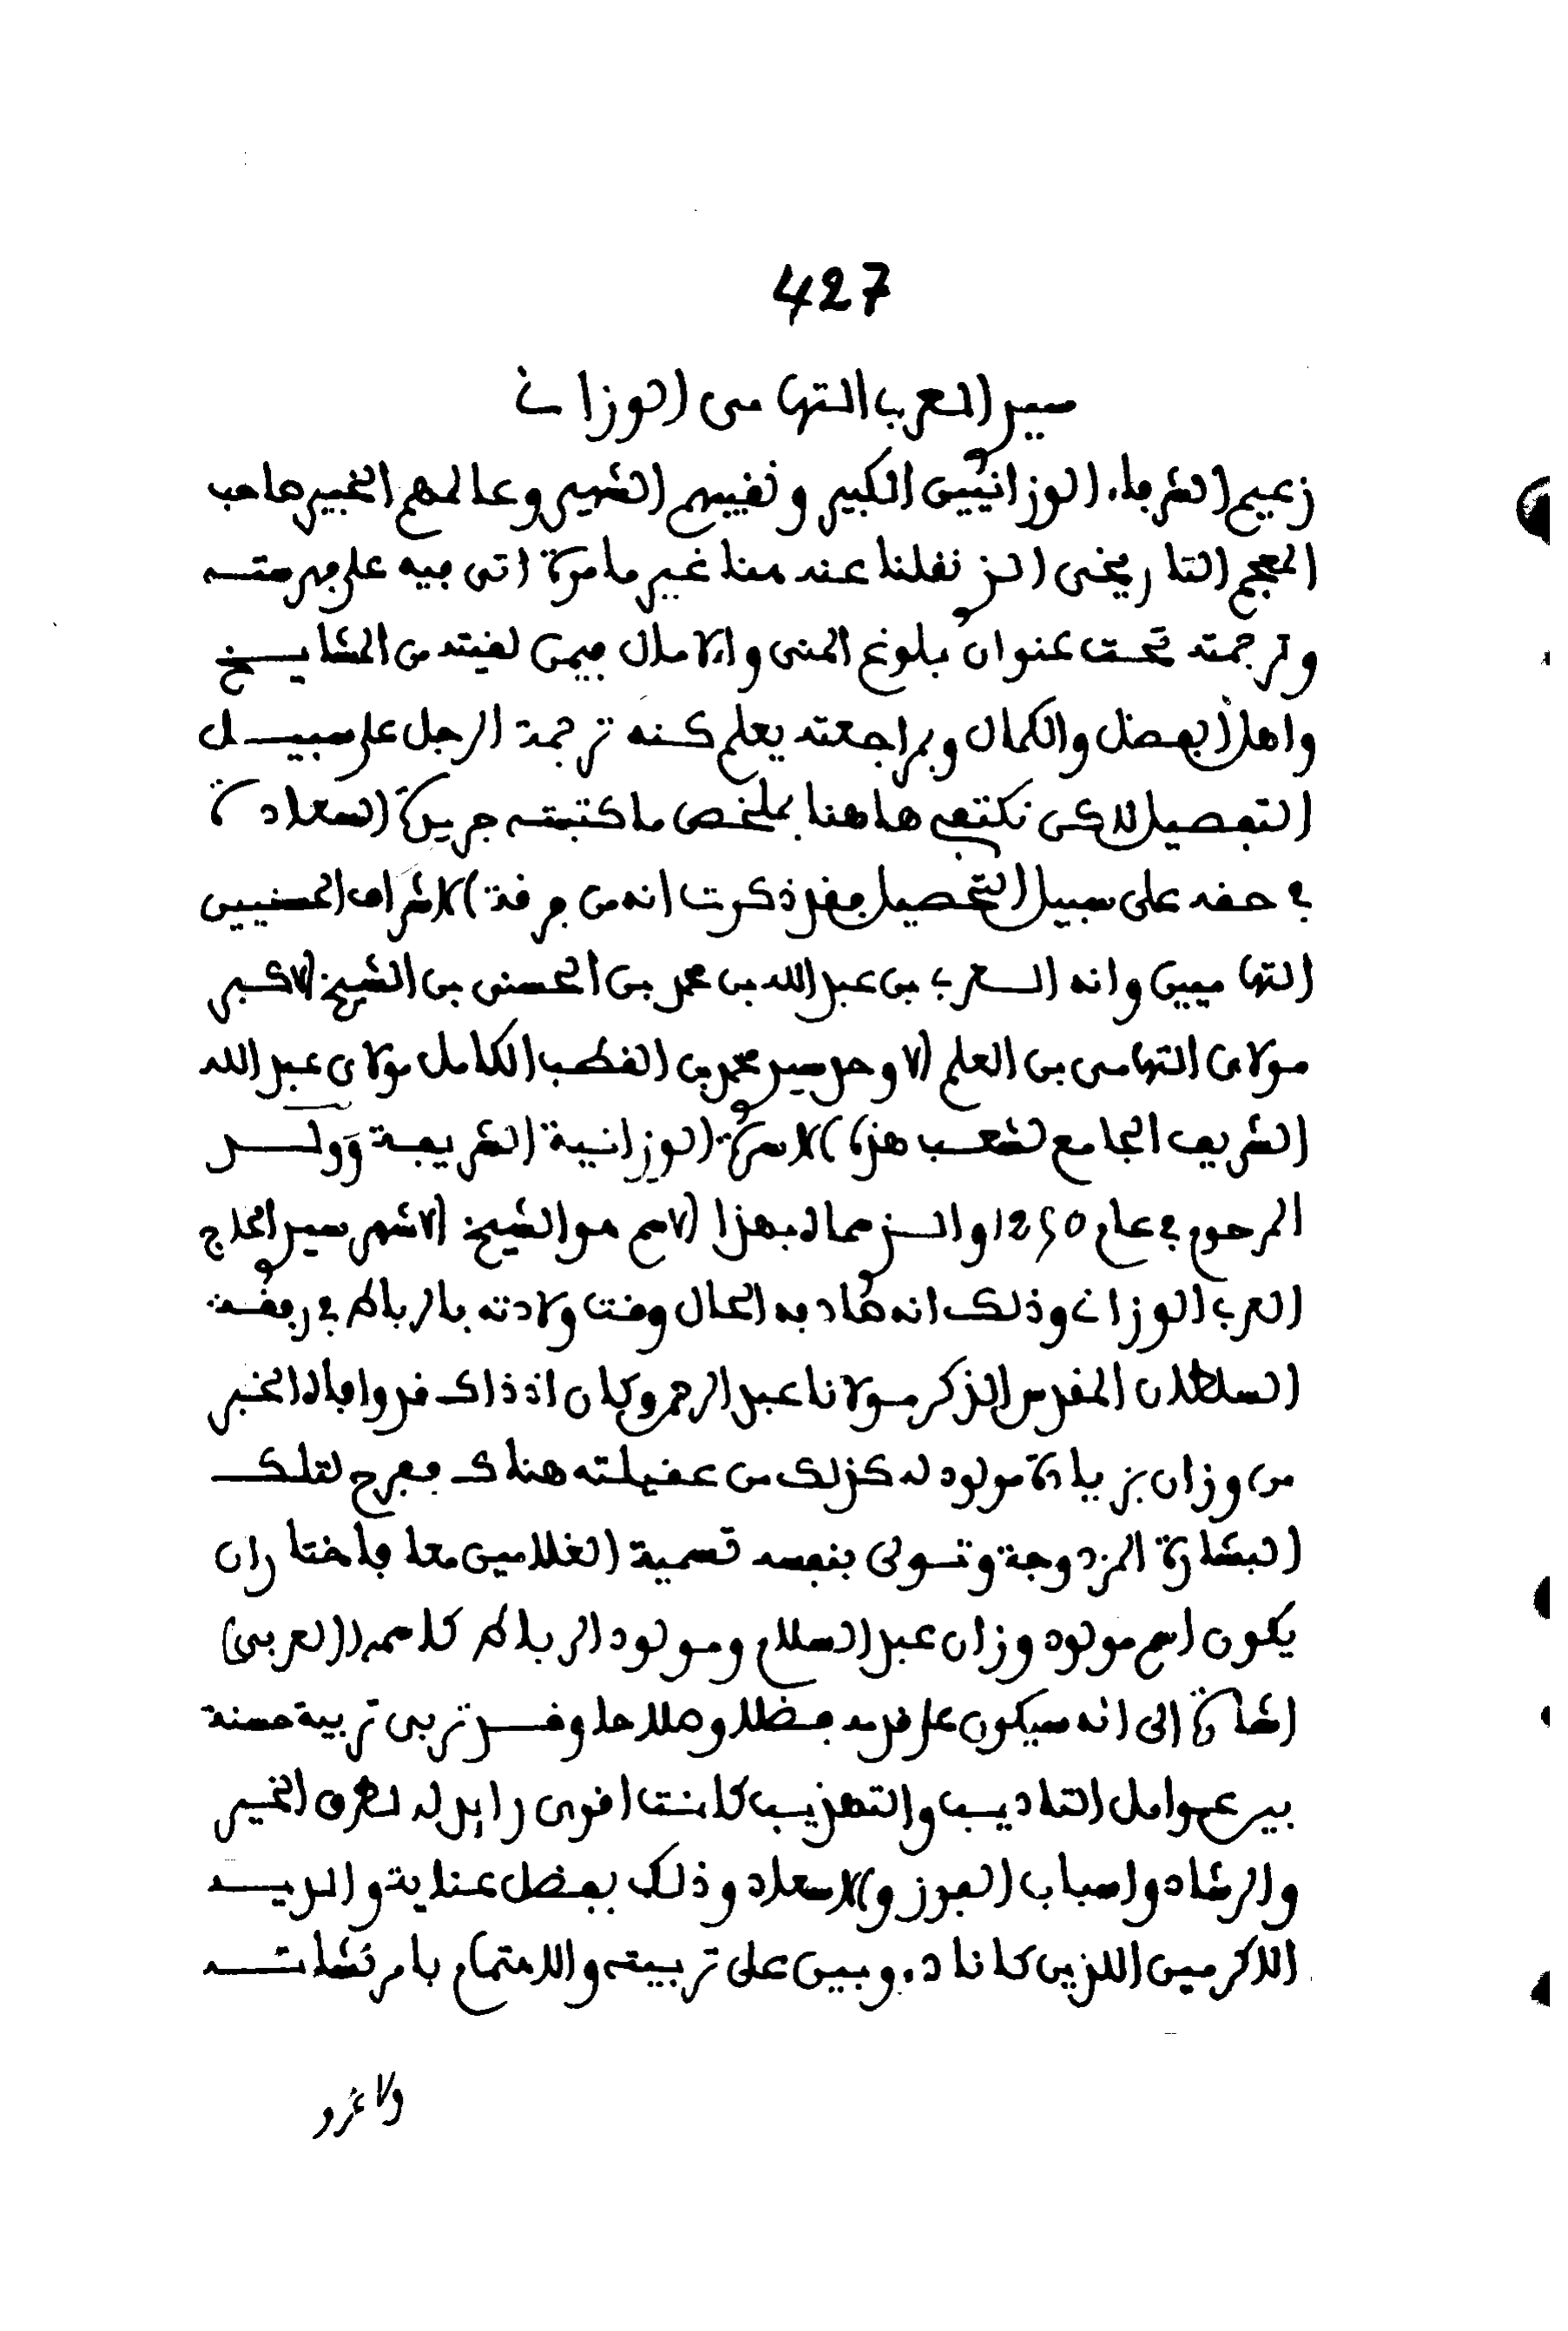 427
سيدي العربي التهامي الوزاني
زعيم الشرفاء الوزانيين الكبير ونقيبهم الشهير وعالمهم الخبير صاحب
المعجم التاريخي الذي نقلنا عنه هنا غير ما مرة اتى فيه على فهرسته
وترجمته تحت عنوان بلوغ المنى والامال فيمن لقيته من المشايخ
واهل الفضل والكمال وبمراجعته يعلم كنه ترجمة الرجل على سبيل
التفصيل لاكن نكتفي هاهنا بملخص ما كتبته جريدة السعادة
في حقه على سبيل التحصيل فقد ذكرت انه من فرقة الاشراف الحسنيين
التهاميين وانه العربي بن عبد الله بن محمد بن الحسني بن الشيخ الاكبر
مولاي التهامي بن العلم الاوحد سيدي محمد بن القطب الكامل مولاي عبد الله
الشريف الجامع لشعب هذه الاسرة الوزانية الشريفة وولد
المرحوم في عام 1250 والذي سماه بهذا الاسم هو الشيخ الاشهر سيدي الحاج
العربي الوزاني وذلك انه صادف الحال وقت ولادته بالرباط في رفقة
السلطان المقدس الذكر مولانا عبد الرحمن وكان اذ ذاك قد وافاه الخبر
من وزان بزيادة مولود له كذلك من عقيلته هناك ففرح لتلك
البشارة المزدوجة وتولى بنفسه تسمية الغلامين معا فاختار ان
يكون اسم مولود وزان عبد السلام ومولود الرباط كاسمه (العربي)
اشارة الى انه سيكون على قدمه فضلا وصلاحا وقد تربى تربية حسنة
بين عوامل التاديب والتهذيب كانت اقوى رابط له لطرق الخير
والرشاد واسباب الفوز والاسعاد وذلك بفضل عناية والديه
الاكرمين اللذين كانا دءوبين على تربيته والاهتمام بامر نشاته
ولا غرو